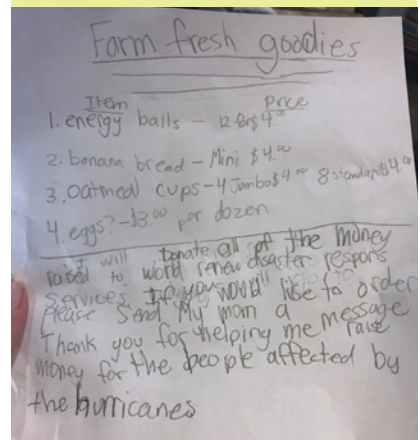 Farm fresh goodies
Item Price
1. energy balls - 12 for $4.00
2. banana bread - Mini $4.00
3. oatmeal cups - 4 Jumbo $4.00 8 standard $4.00
4. eggs? - $3.00 per dozen
I will Donate all of the money
raised to world renew disaster respons
services. If you would like to order
Please Send My mom a message
Thank you for helping me raise
money for the people affected by
the hurricanes